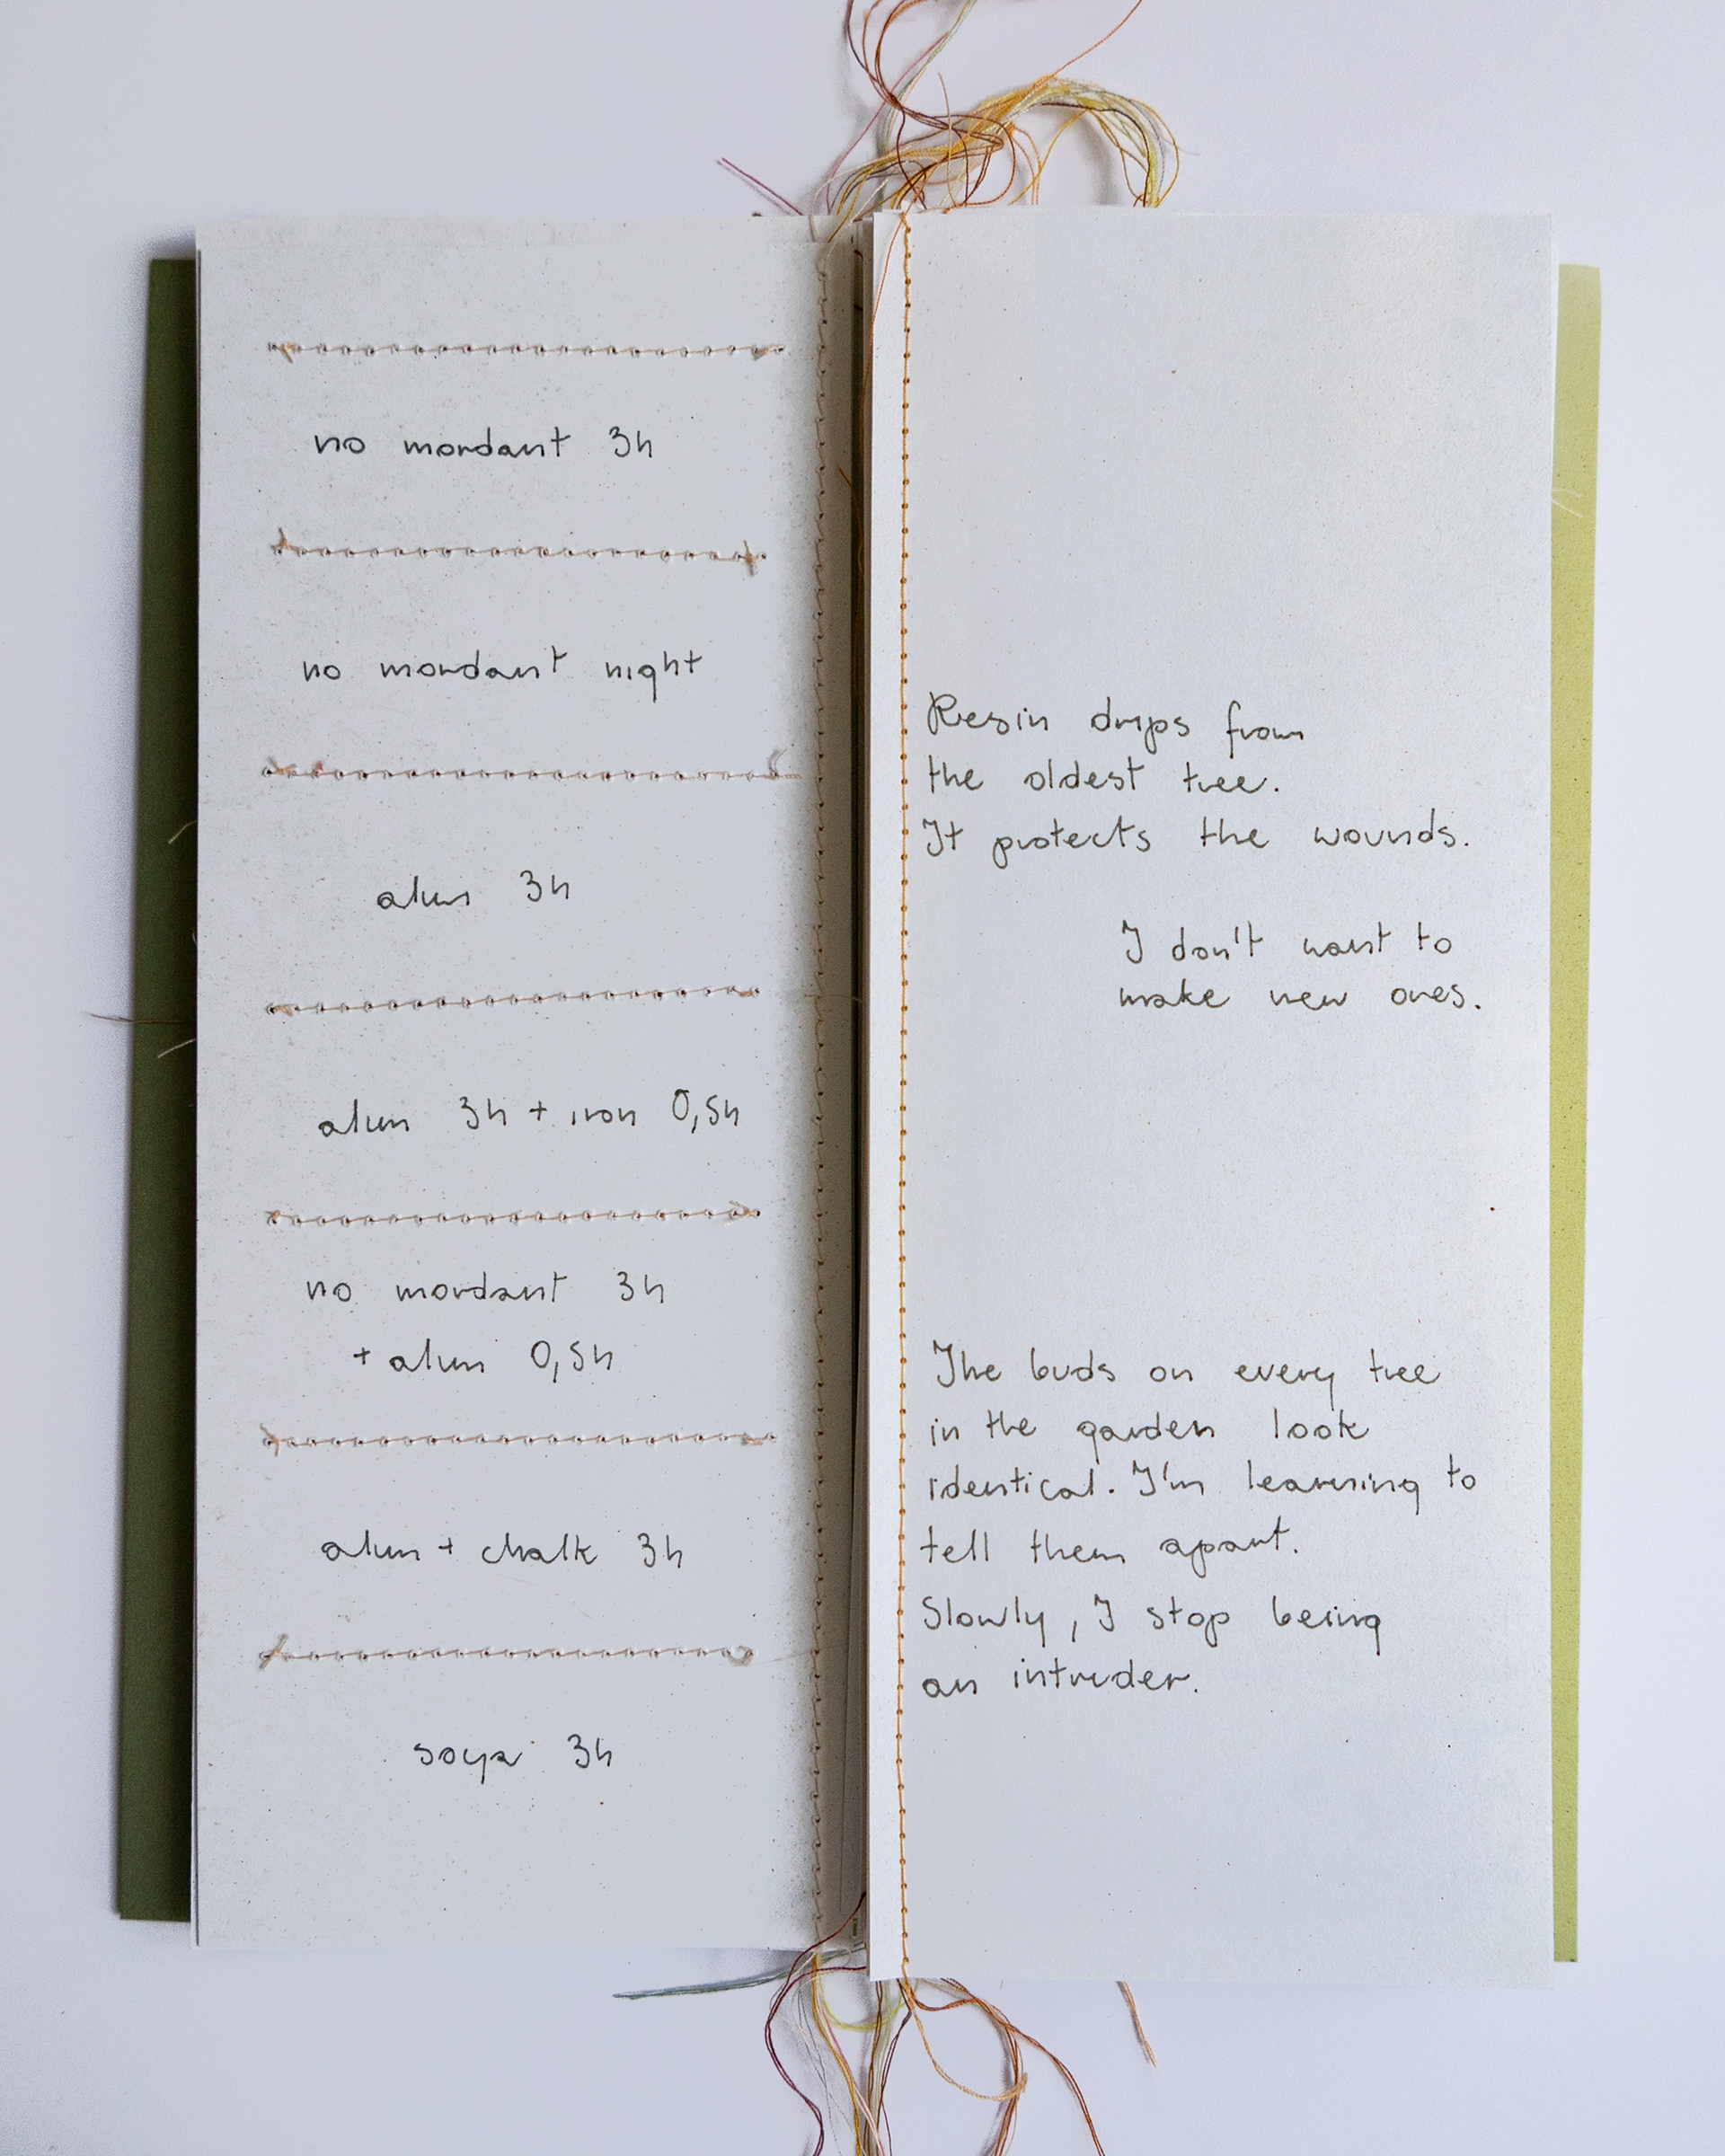 no mordant 3h
no mordant night
alum 3h
alum 3h + iron 0,5h
no mordant 3h
+ alum 0,5h
alum + chalk 3h
soya 3h
Resin drips from
the oldest tree.
It protects the wounds.
I don't want to
make new ones.
The buds on every tree
in the garden look
identical. I'm learning to
tell them apart.
Slowly, I stop being
an intruder.